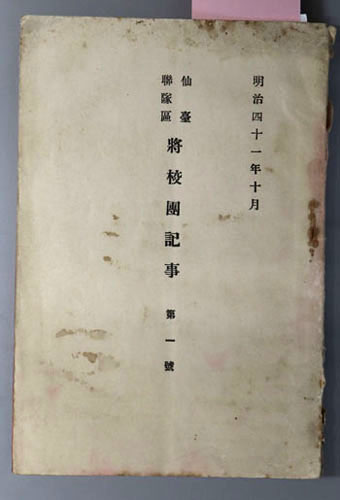 明治四十一年十月
仙臺
聯隊區
將校團記事 第一號